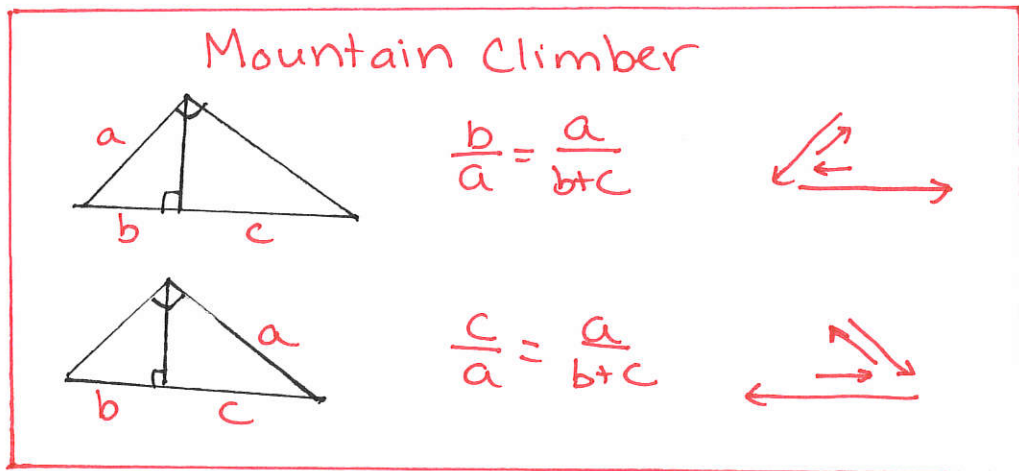 Mountain Climber
a
b c
b/a = a/b+c
a
b c
c/a = a/b+c